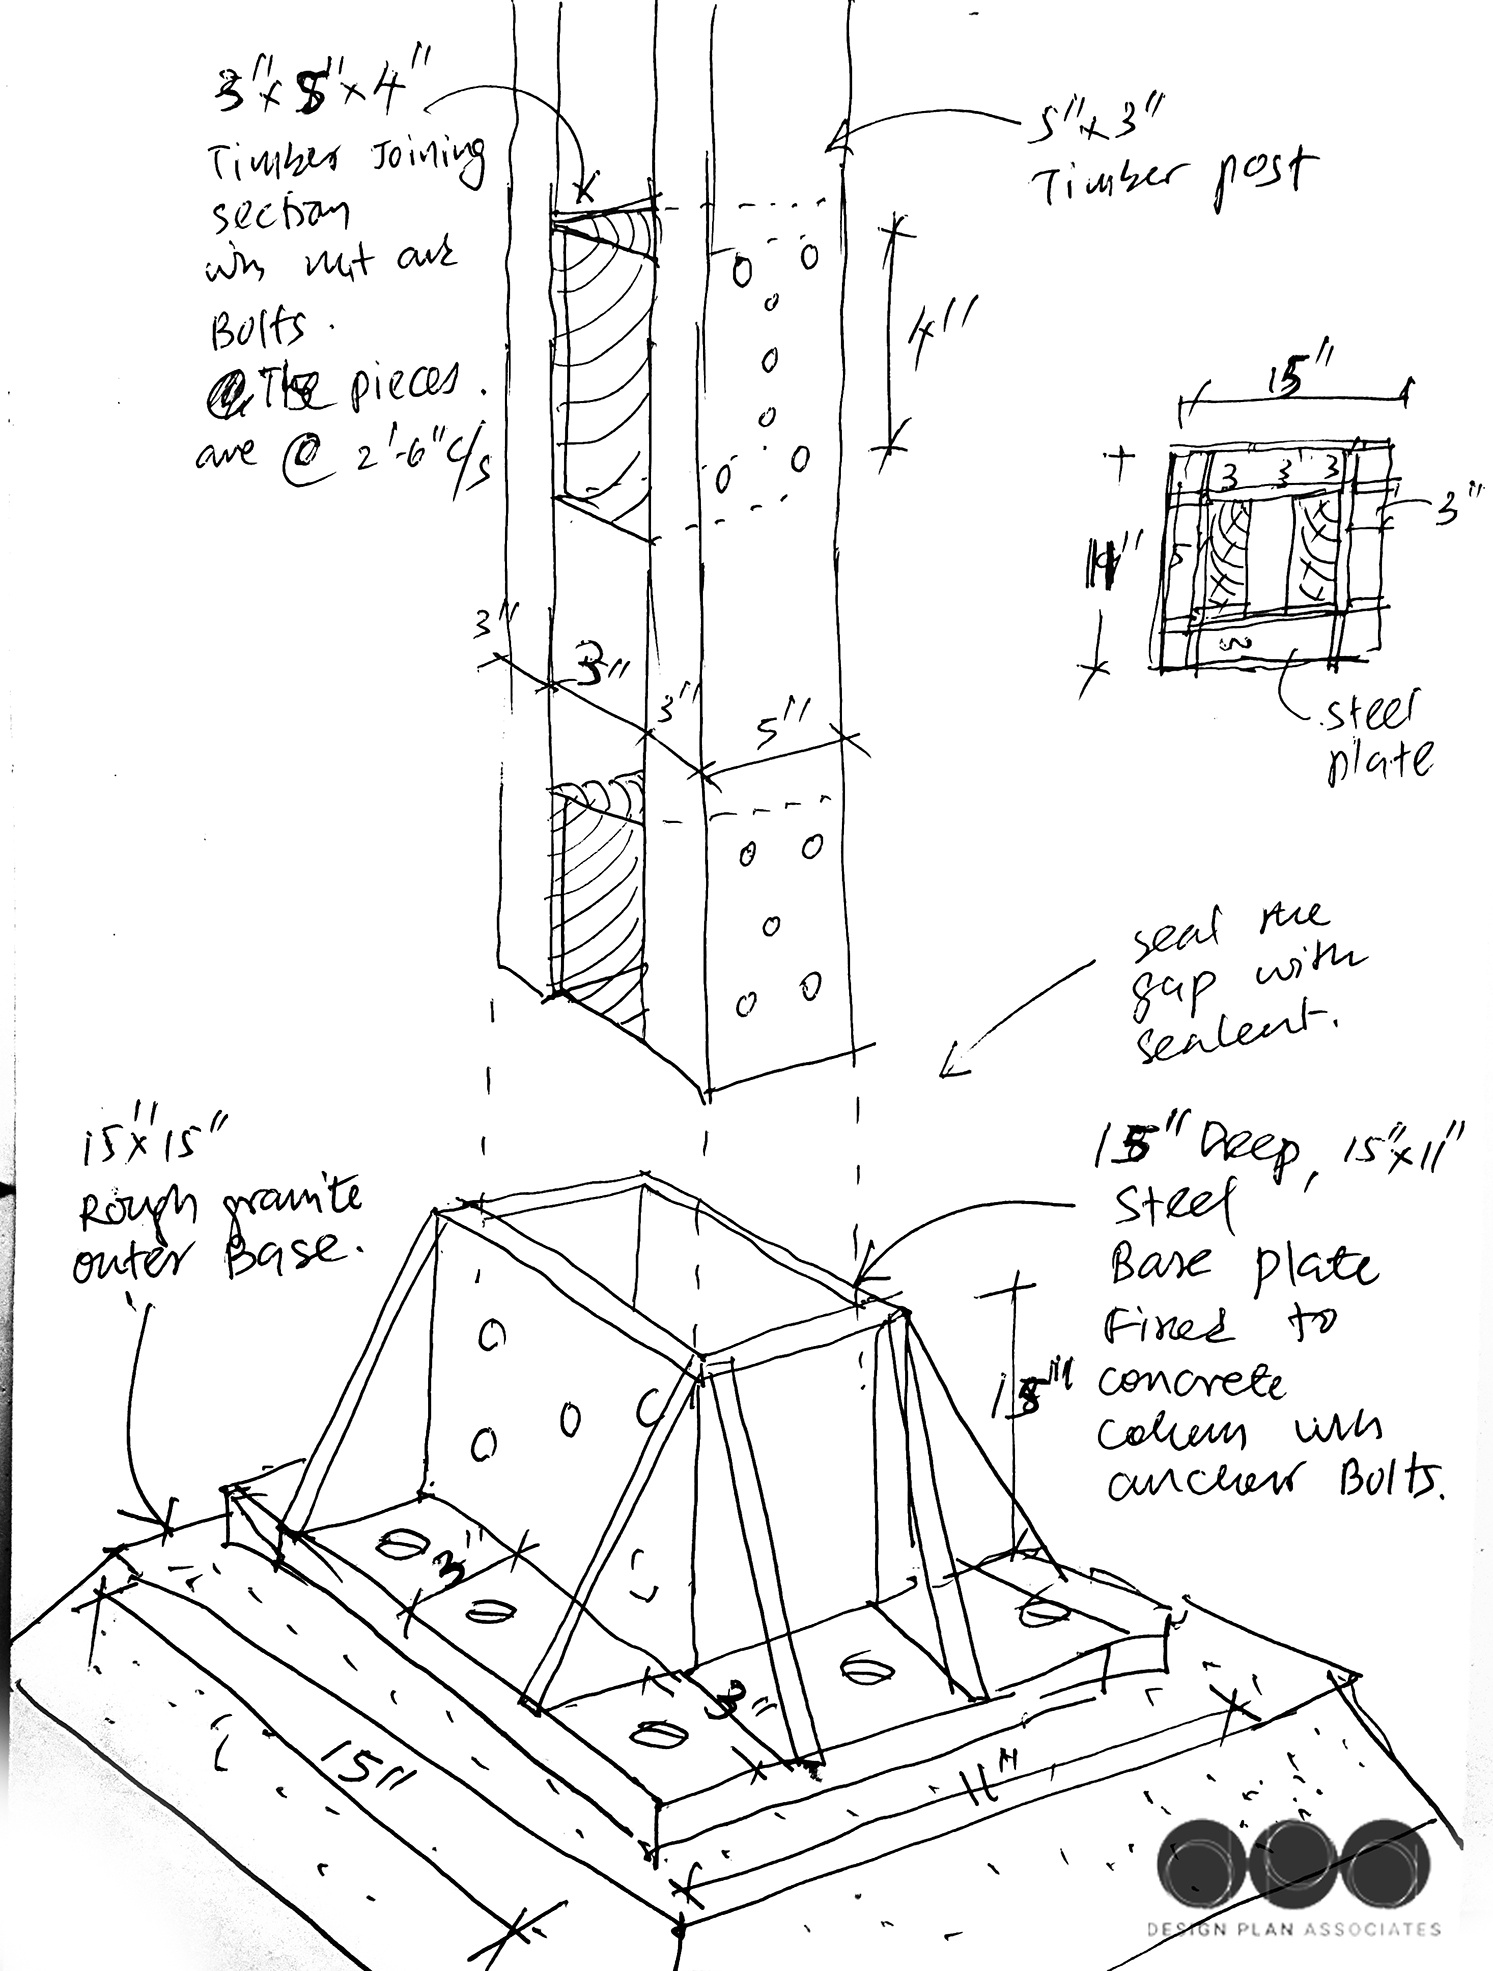 3"x5"x4"
Timber Joining
section
nut
Bolts.
The pieces.
are @ 2'-6" c/s
5"x3"
Timber post
4"
15"
3 3 3
3"
5
11"
3
steel
plate
3"
3"
3"
5"
seal the
gap with
sealent.
15"x15"
Rough granite
outer Base.
15" Deep, 15"x11"
Steel
Base plate
Fixed to
concrete
column with
anchor Bolts.
15"
3"
3"
15"
11"
dpa
DESIGN PLAN ASSOCIATES